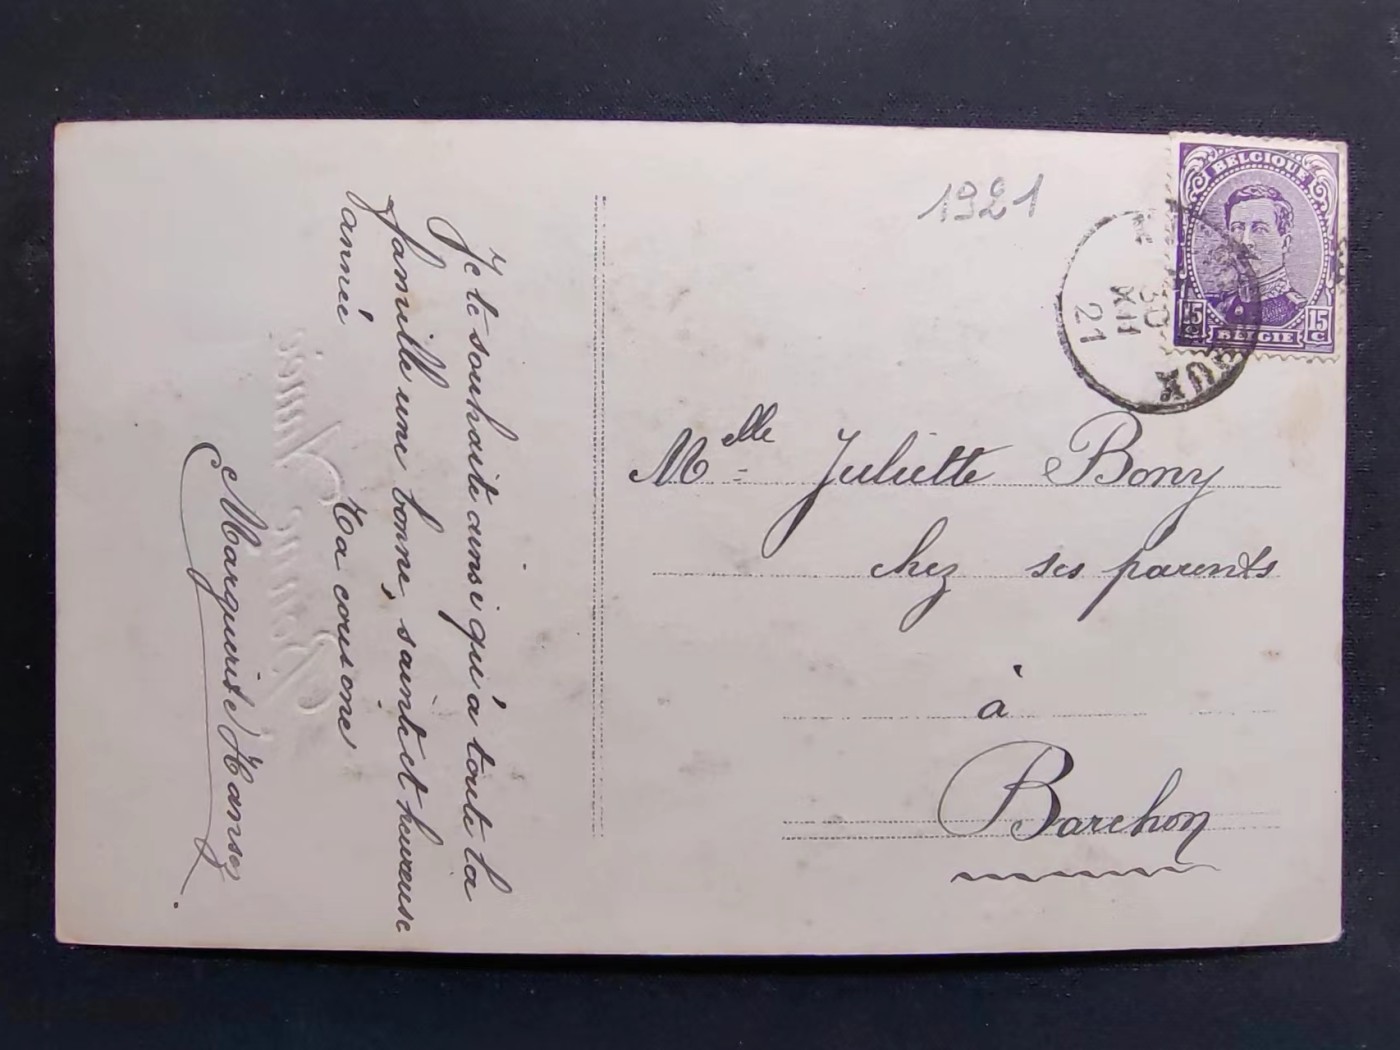 Je te souhaite ainsi qu'à toute ta
famille une bonne, sainte et heureuse
année
Ta cousine
Marguerite Hansez
1921
BELGIQUE
15 c
15 c
BELGIE
30
XII
21
Melle Juliette Bony
chez ses parents
à
Barchon
Bonne Année